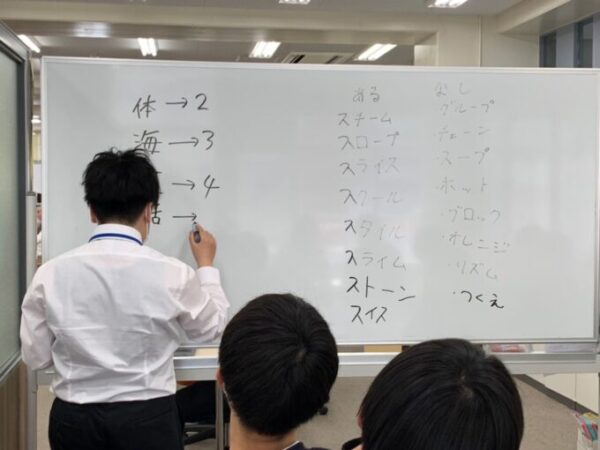 体→2
海→3
→4
→
ある
スチーム
スロープ
スライス
スクール
スタイル
スライム
ストーン
スイス
なし
・グループ
・チェーン
・スープ
・ホット
・ブロック
・オレンジ
・リズム
・つくえ